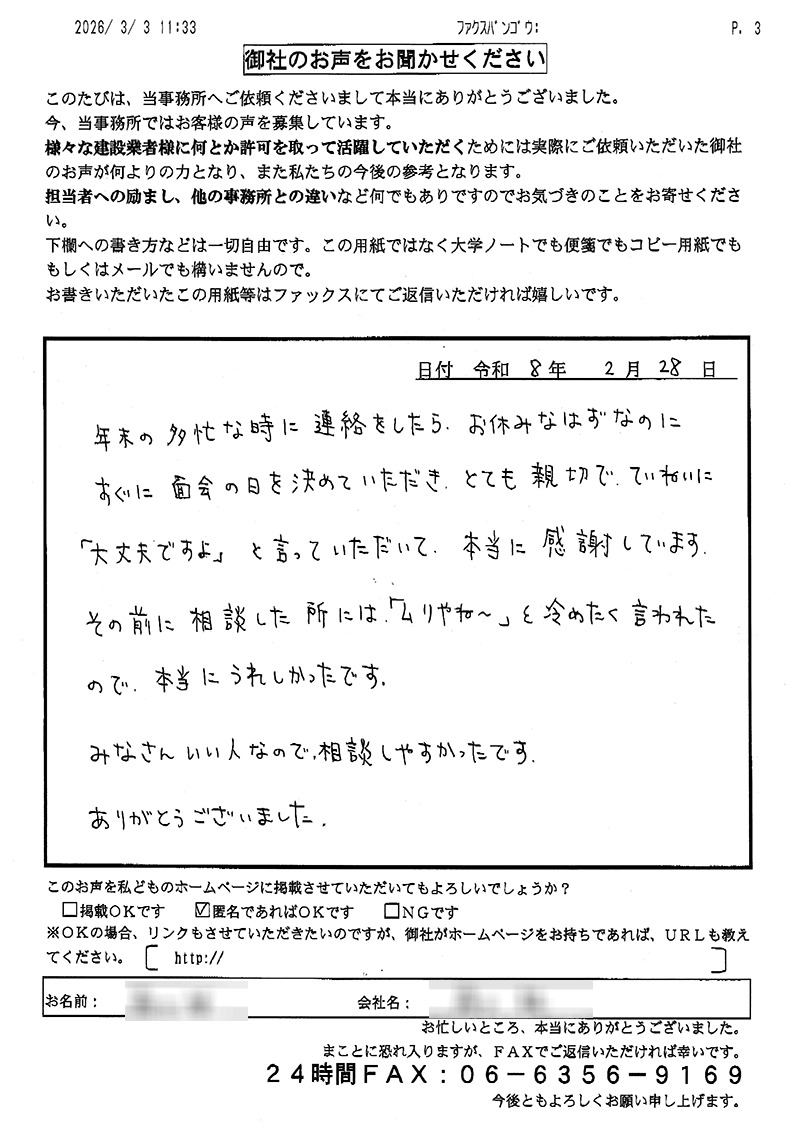 2026/ 3/ 3 11:33 ﾌｧｸｽﾊﾞﾝｺﾞｳ: P. 3
御社のお声をお聞かせください
このたびは、当事務所へご依頼くださいまして本当にありがとうございました。
今、当事務所ではお客様の声を募集しています。
様々な建設業者様に何とか許可を取って活躍していただくためには実際にご依頼いただいた御社
のお声が何よりの力となり、また私たちの今後の参考となります。
担当者への励まし、他の事務所との違いなど何でもありですのでお気づきのことをお寄せくださ
い。
下欄への書き方などは一切自由です。この用紙ではなく大学ノートでも便箋でもコピー用紙でも
もしくはメールでも構いませんので。
お書きいただいたこの用紙等はファックスにてご返信いただければ嬉しいです。
日付 令和 8年 2月 28日
年末の多忙な時に連絡をしたら、お休みなはずなのに
すぐに面会の日を決めていただき、とても親切で、ていねいに
「大丈夫ですよ」と言っていただいて、本当に感謝しています。
その前に相談した所には、「ムリやね〜」と冷めたく言われた
ので、本当にうれしかったです。
みなさんいい人なので、相談しやすかったです。
ありがとうございました。
このお声を私どものホームページに掲載させていただいてもよろしいでしょうか？
□掲載ＯＫです ☑匿名であればＯＫです □ＮＧです
※ＯＫの場合、リンクもさせていただきたいのですが、御社がホームページをお持ちであれば、ＵＲＬも教え
てください。 [ http:// ]
お名前： 会社名：
お忙しいところ、本当にありがとうございました。
まことに恐れ入りますが、ＦＡＸでご返信いただければ幸いです。
２４時間ＦＡＸ：０６－６３５６－９１６９
今後ともよろしくお願い申し上げます。